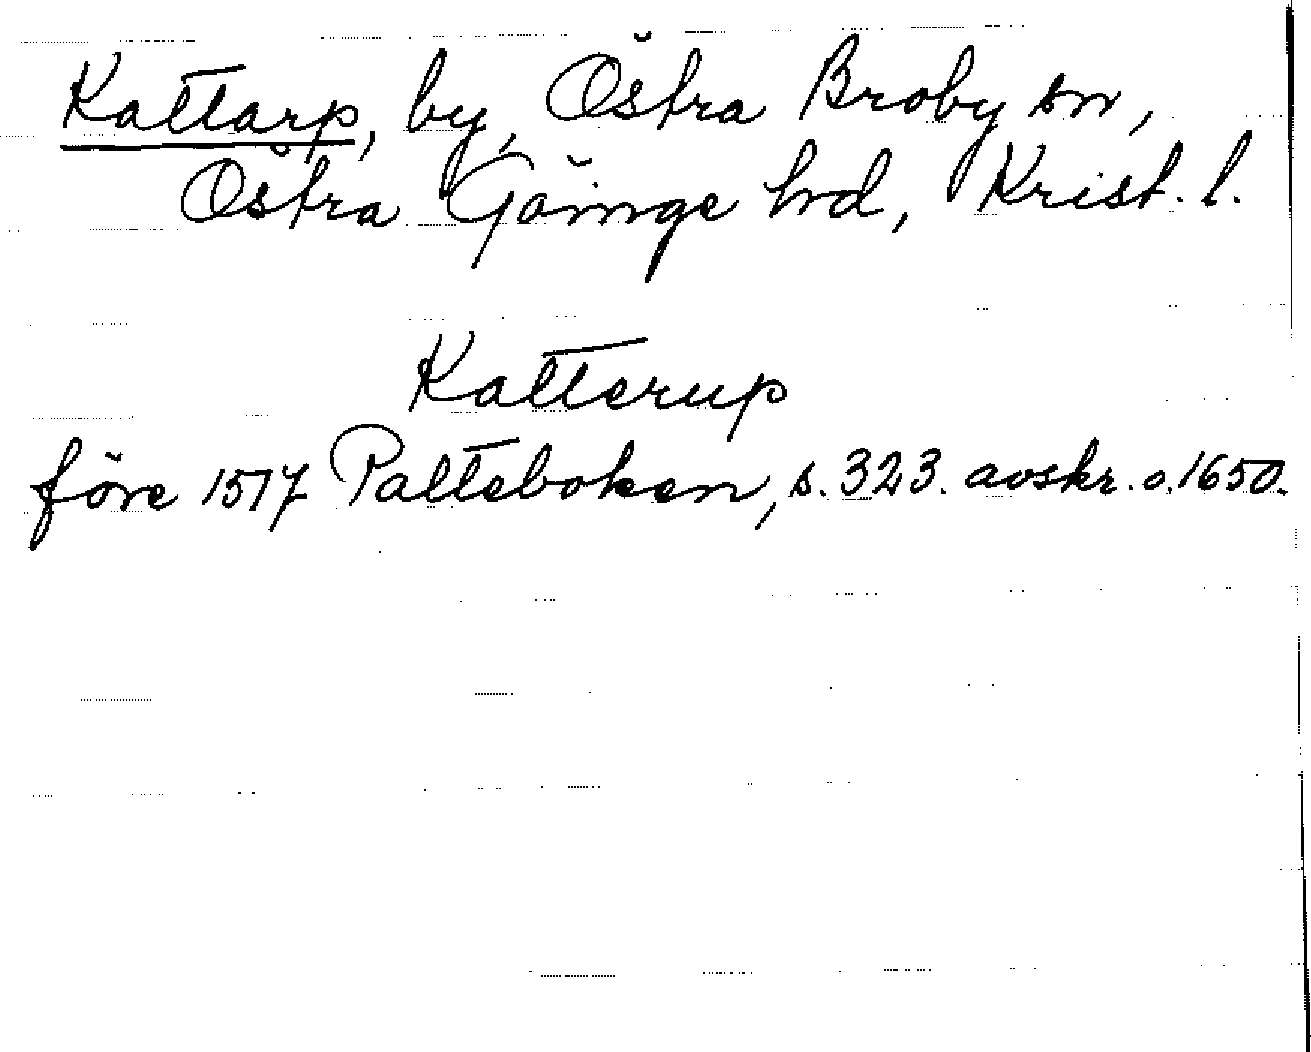 Kattarp, by, Östra Broby sn,
Östra Göinge hrd, Krist. l.
Katterup
före 1517 Palteboken, s. 323. avskr. o. 1650.